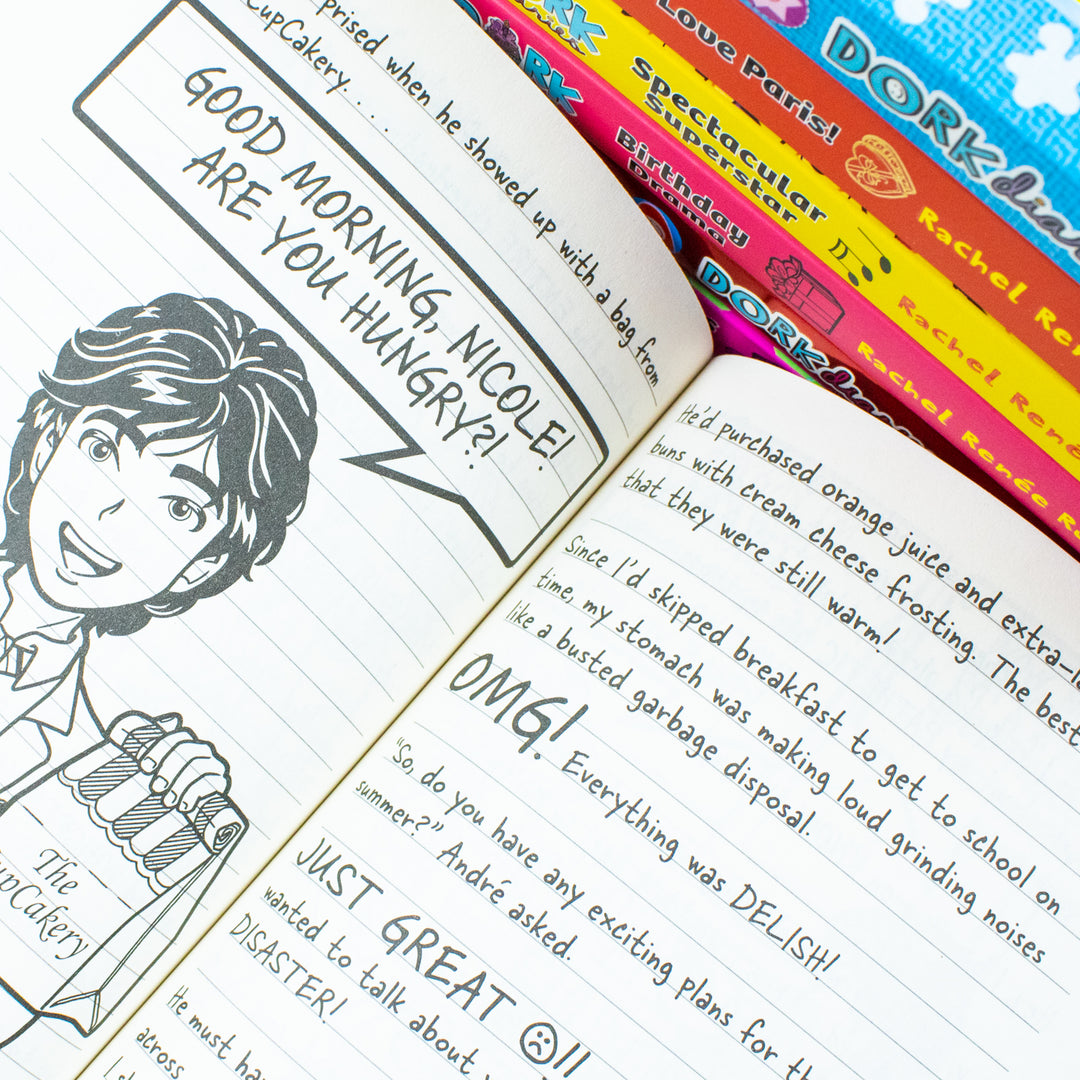 prised when he showed up with a bag from
CupCakery. . . .
GOOD MORNING, NICOLE!
ARE YOU HUNGRY?!
The
CupCakery
He'd purchased orange juice and
buns with cream cheese frosting. The best
that they were still warm!
Since I'd skipped breakfast to get to school on
time, my stomach was making loud grinding noises
like a busted garbage disposal.
OMG! Everything was DELISH!
"So, do you have any exciting plans for
summer?" André asked.
JUST GREAT ☹!!
wanted to talk about
DISASTER!
He must
across
DORK
Love Paris!
Rachel
DORK diaries
Spectacular
Superstar
Rachel Renée
DORK
Birthday
Drama
Rachel Renée
DORK